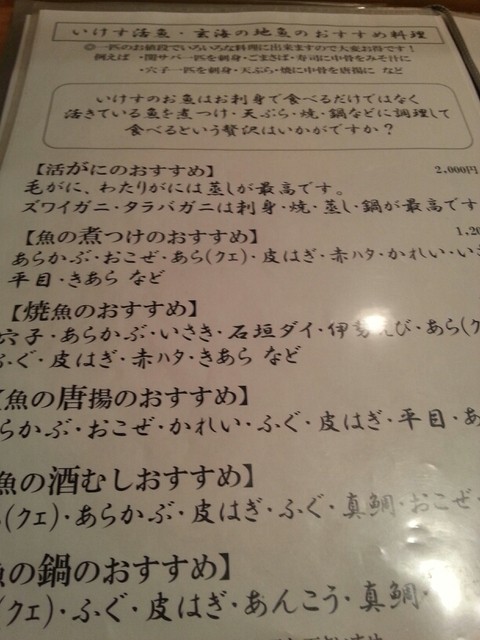 いけす活魚・玄海の地魚のおすすめ料理
◎一匹のお値段でいろいろな料理に出来ますので大変お得です!
例えば ・関サバ一匹を刺身・ごまさば・寿司に中骨をみそ汁に
・穴子一匹を刺身・天ぷら・焼に中骨を唐揚に など
いけすのお魚はお刺身で食べるだけではなく
活きている魚を煮つけ・天ぷら・焼・鍋などに調理して
食べるという贅沢はいかがですか?
【活がにのおすすめ】 2,000円
毛がに、わたりがには蒸しが最高です。
ズワイガニ・タラバガニは刺身・焼・蒸し・鍋が最高です
【魚の煮つけのおすすめ】 1,20
あらかぶ・おこぜ・あら(クエ)・皮はぎ・赤ハタ・かれい・い
平目・きあら など
【焼魚のおすすめ】
穴子・あらかぶ・いさき・石垣ダイ・伊勢えび・あら(ク
ふぐ・皮はぎ・赤ハタ・きあら など
【魚の唐揚のおすすめ】
らかぶ・おこぜ・かれい・ふぐ・皮はぎ・平目・あ
魚の酒むしおすすめ】
(クエ)・あらかぶ・皮はぎ・ふぐ・真鯛・おこぜ・
魚の鍋のおすすめ】
(クエ)・ふぐ・皮はぎ・あんこう・真鯛・